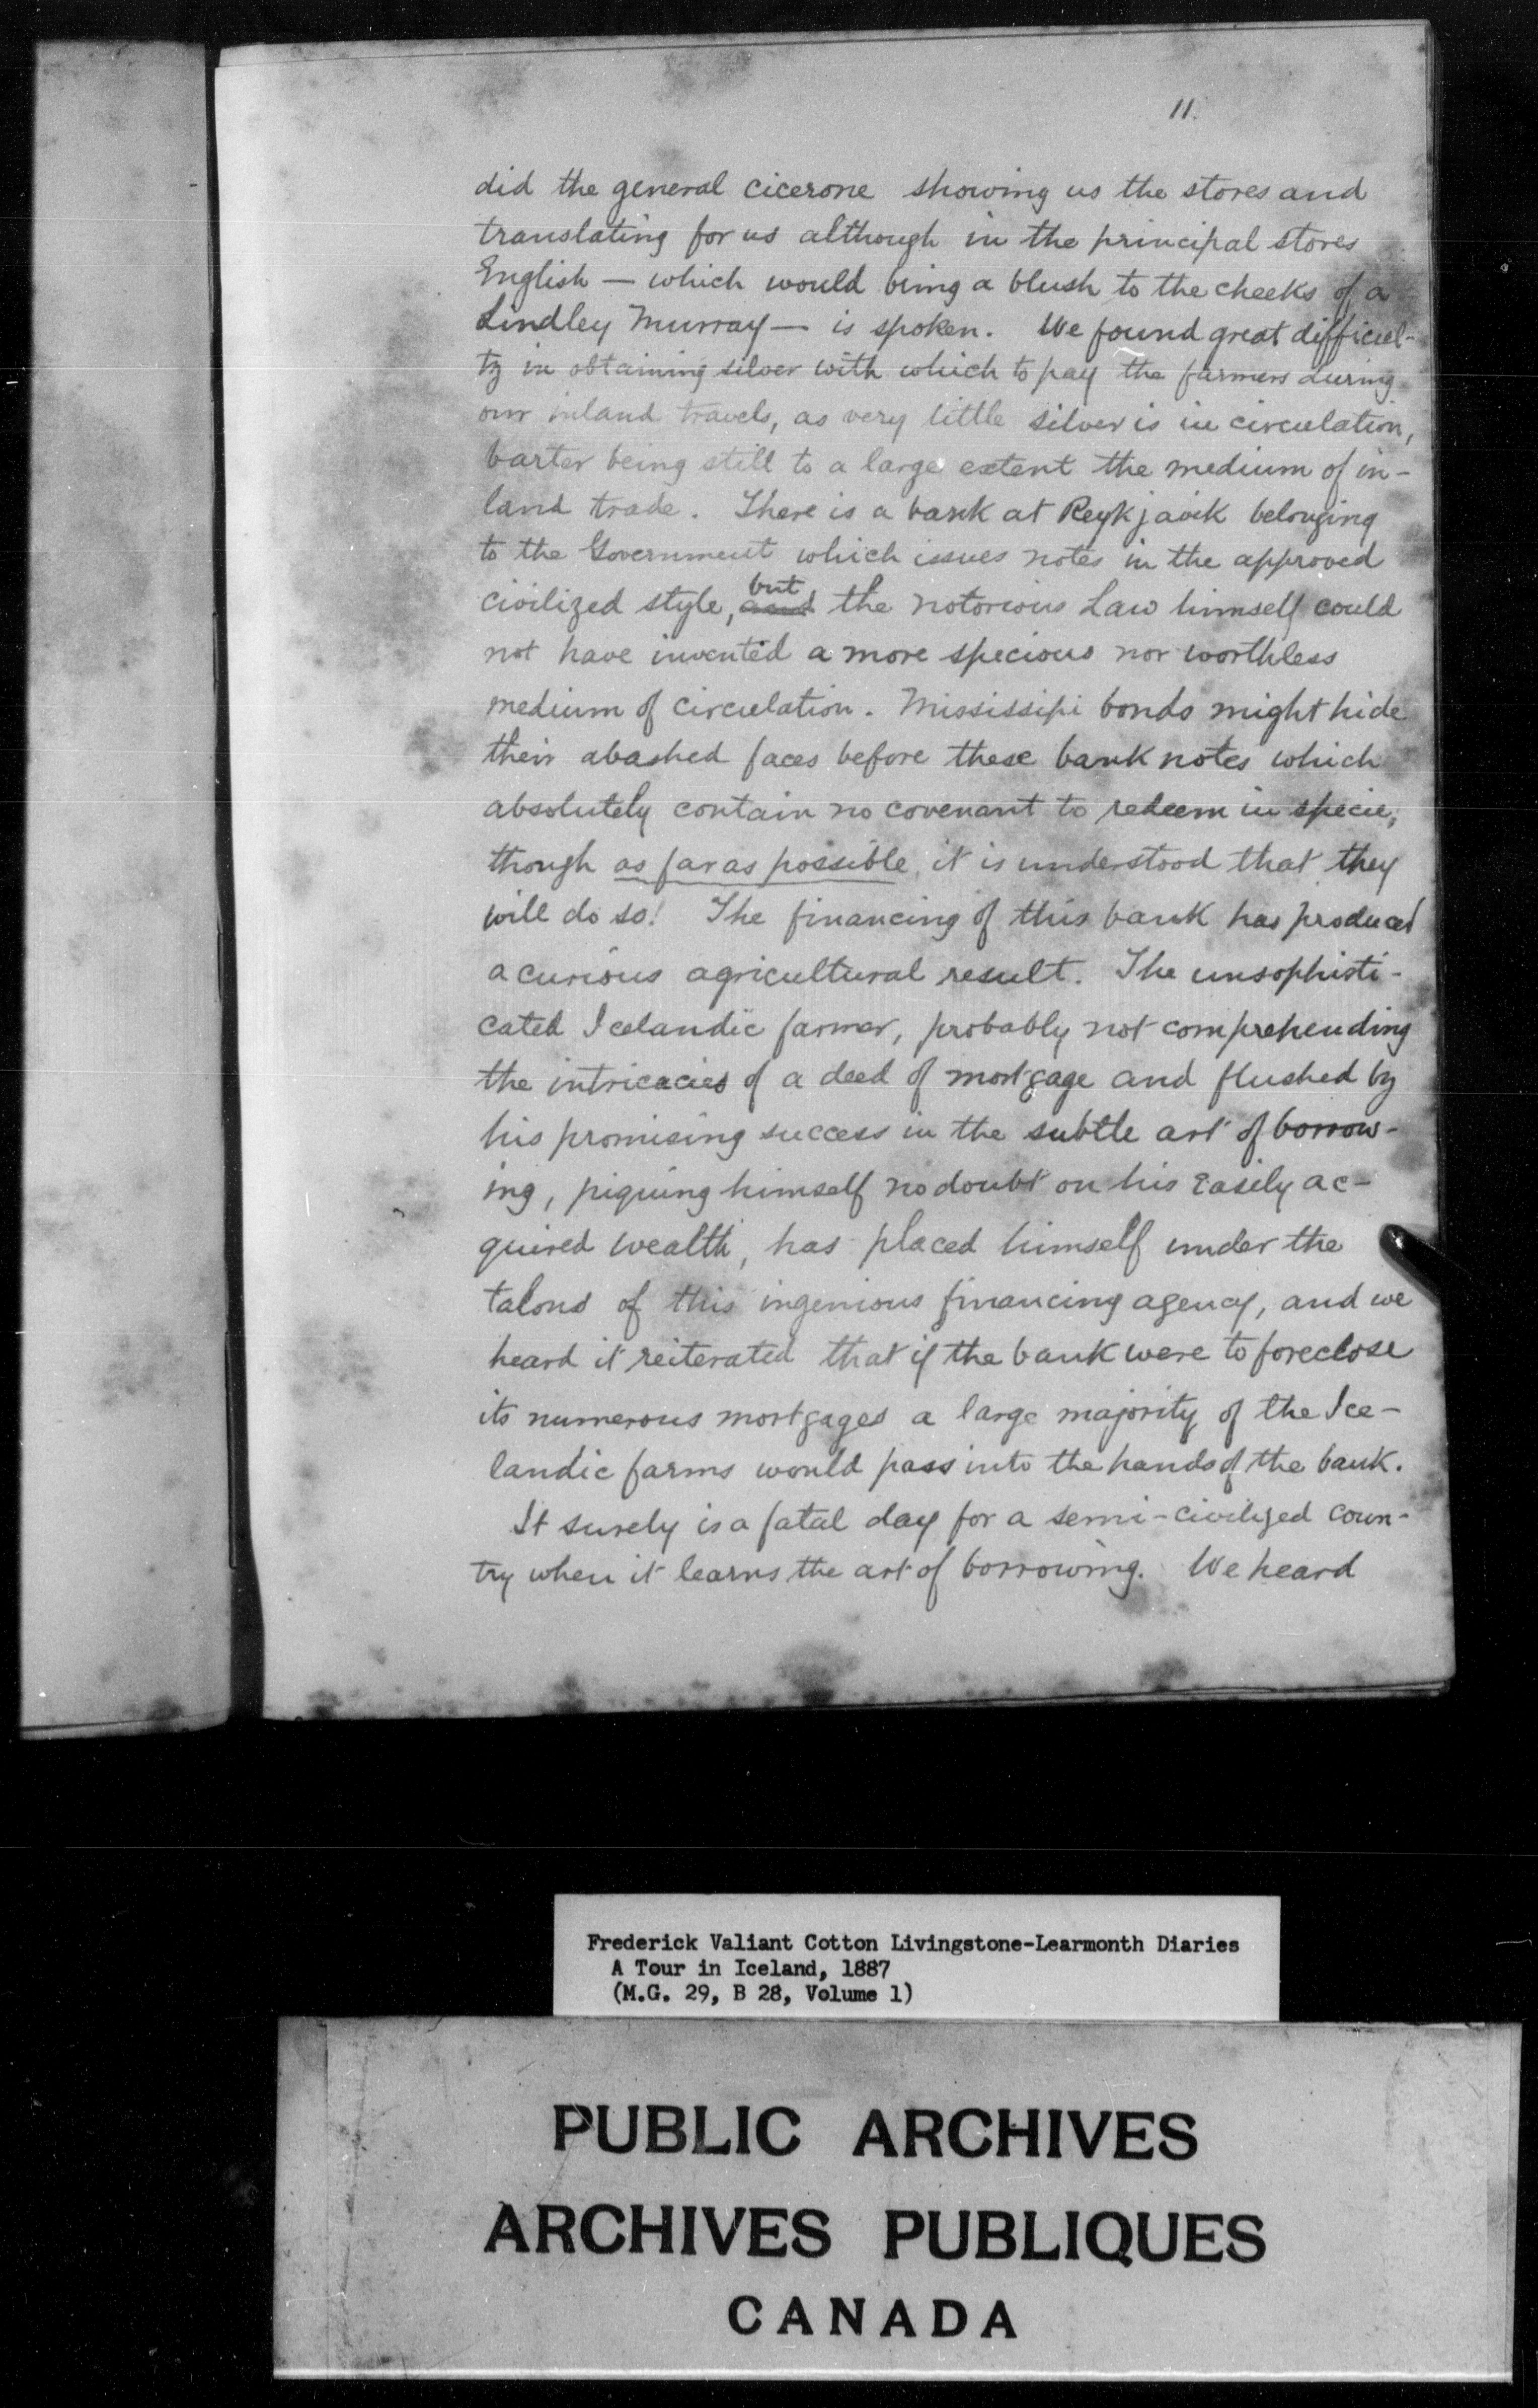 11.
did the general cicerone showing us the stores and
translating for us although in the principal stores
English — which would bring a blush to the cheeks of a
Lindley Murray — is spoken. We found great difficul-
ty in obtaining silver with which to pay the farmers during
our inland travels, as very little silver is in circulation,
barter being still to a large extent the medium of in-
land trade. There is a bank at Reykjavik belonging
to the Government which issues notes in the approved
but
civilized style, and the notorious Law himself could
not have invented a more specious nor worthless
medium of circulation. Mississipi bonds might hide
their abashed faces before these bank notes which
absolutely contain no covenant to redeem in specie,
though as far as possible, it is understood that they
will do so! The financing of this bank has produced
a curious agricultural result. The unsophisti-
cated Icelandic farmer, probably not comprehending
the intricacies of a deed of mortgage and flushed by
his promising success in the subtle art of borrow-
ing, piquing himself no doubt on his easily ac-
quired wealth, has placed himself under the
talons of this ingenious financing agency, and we
heard it reiterated that if the bank were to foreclose
its numerous mortgages a large majority of the Ice-
landic farms would pass into the hands of the bank.
It surely is a fatal day for a semi-civilized coun-
try when it learns the art of borrowing. We heard
Frederick Valiant Cotton Livingstone-Learmonth Diaries
A Tour in Iceland, 1887
(M.G. 29, B 28, Volume 1)
PUBLIC ARCHIVES
ARCHIVES PUBLIQUES
CANADA